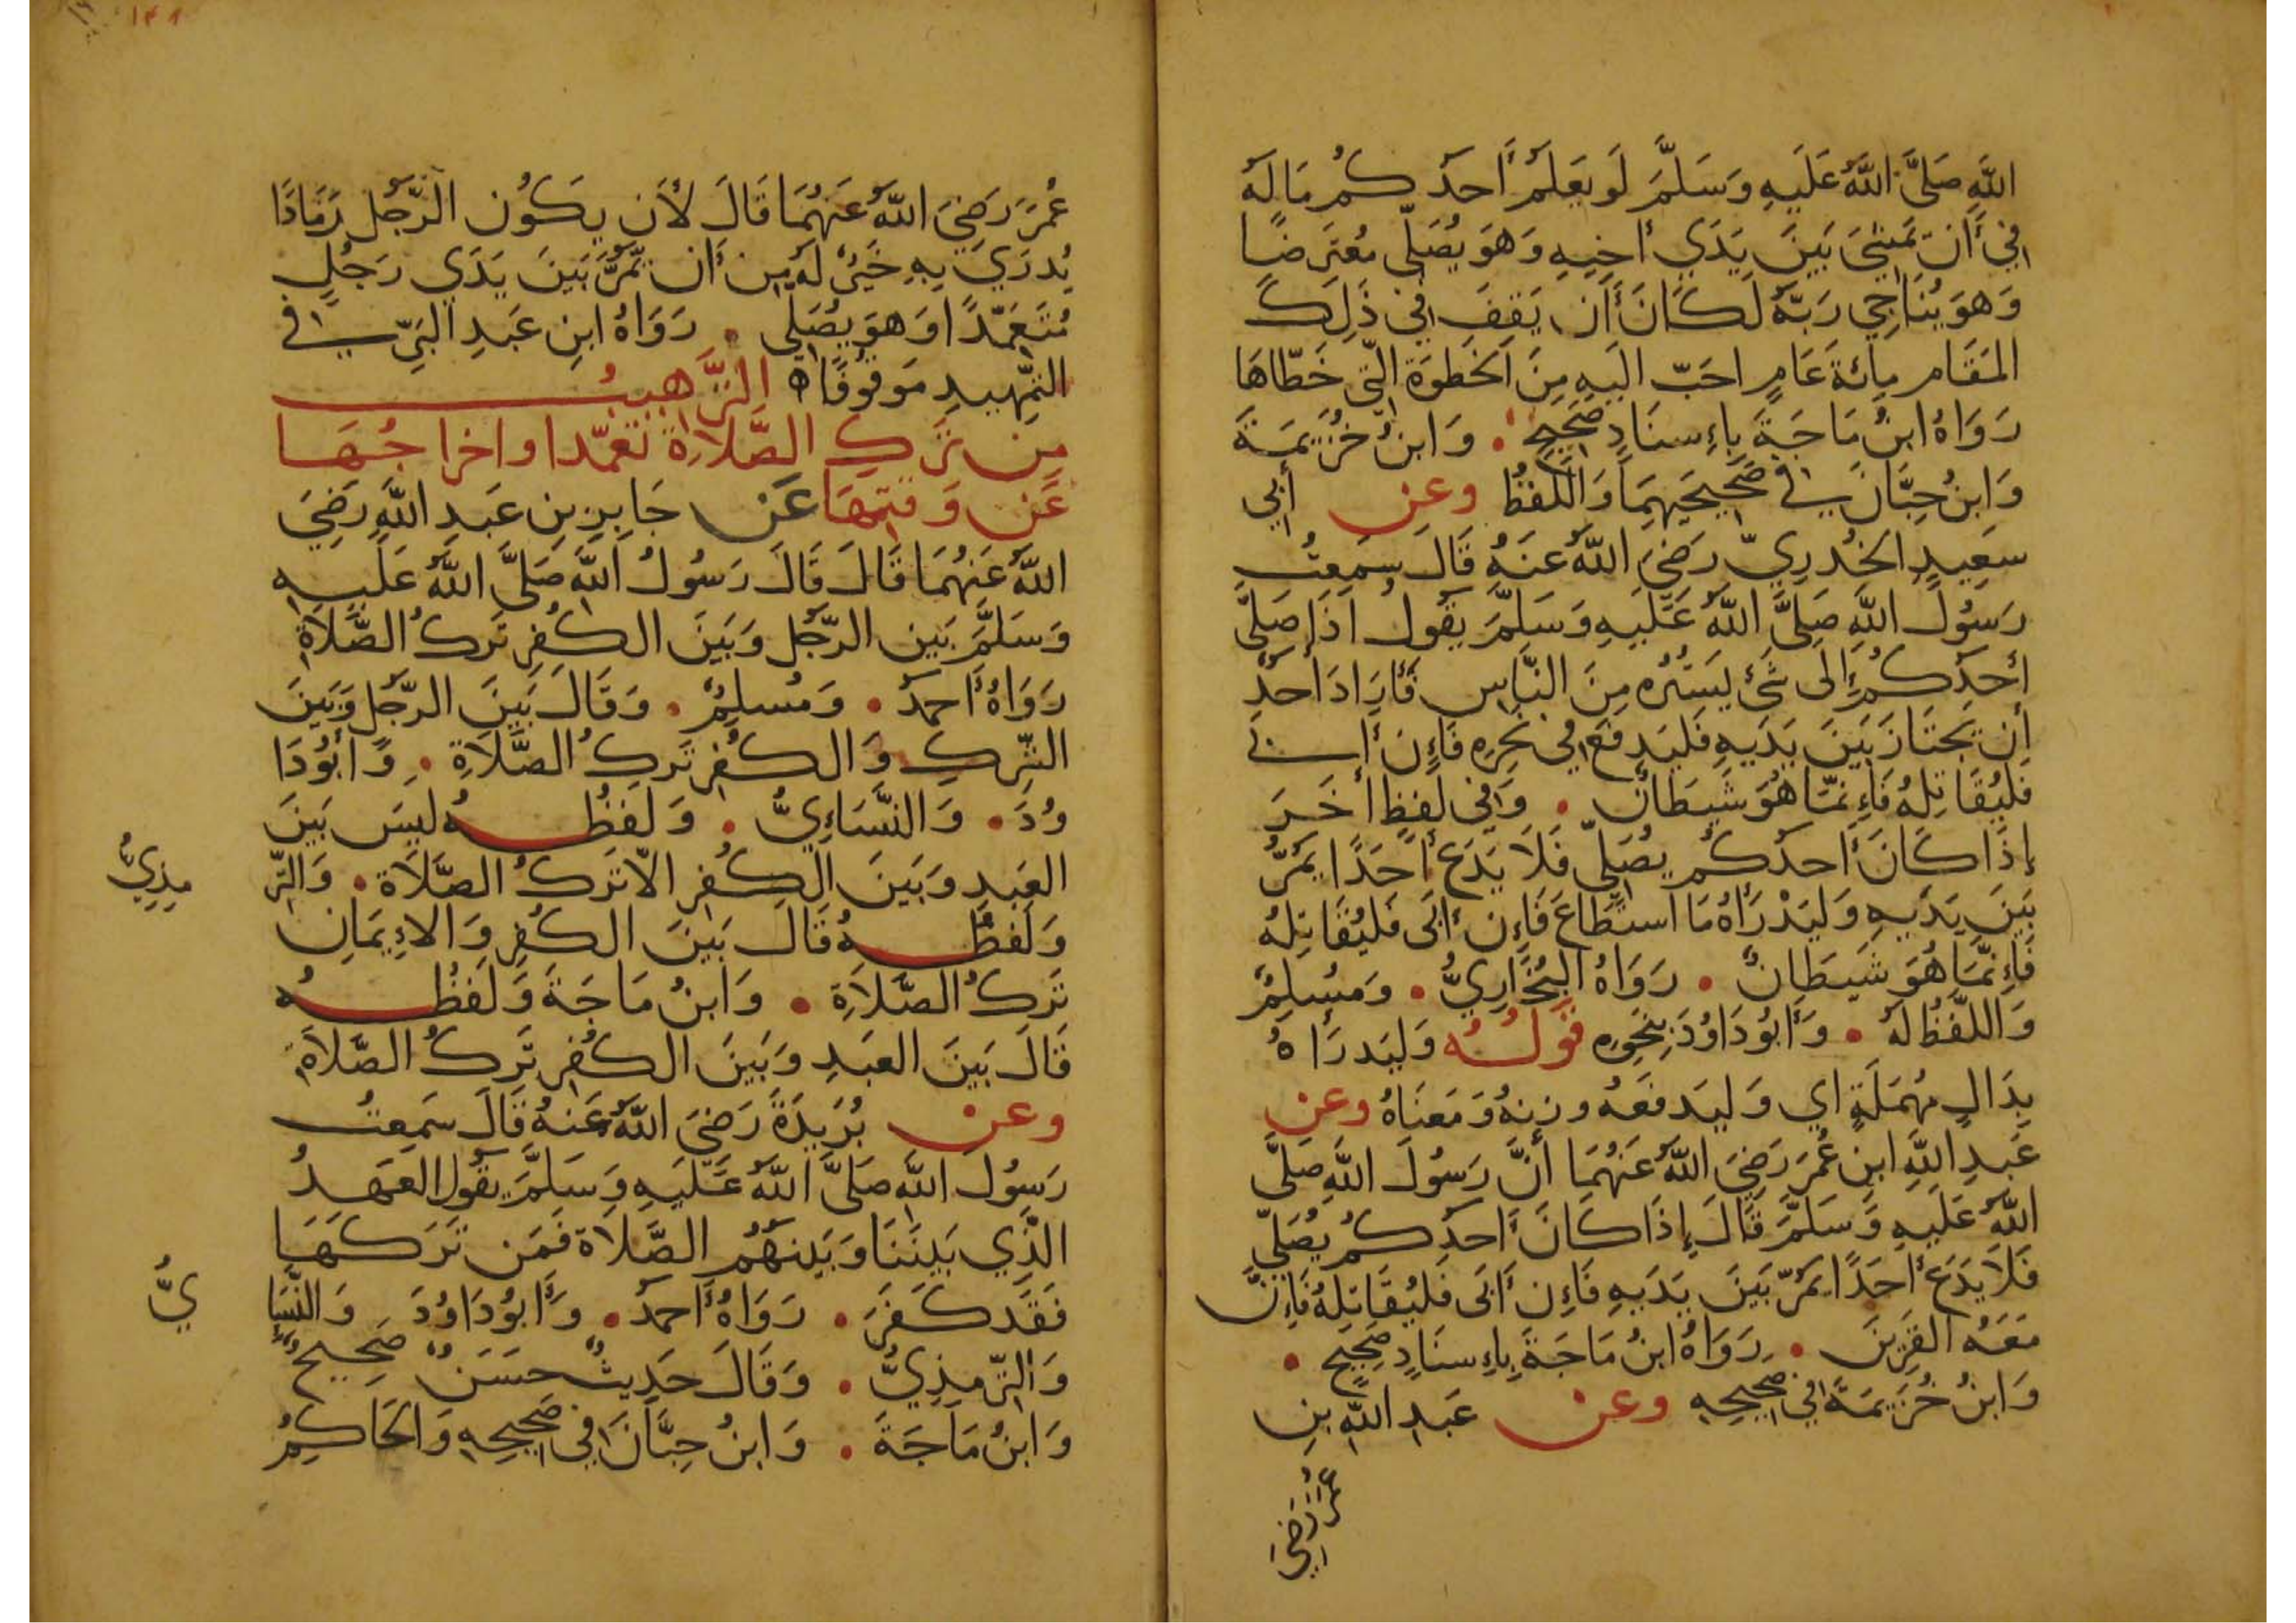 اللَّهِ صَلَّى اللَّهُ عَلَيهِ وَسَلَّمَ لَو يَعلَمُ أَحَدُكُم مَا لَهُ
فِي أَن يَمشِيَ بَينَ يَدَي أَخِيهِ وَهوَ يُصَلِّي مُعتَرِضًا
وَهوَ يُنَاجِي رَبَّهُ لَكَانَ أَن يَقِفَ فِي ذَلِكَ
المَقَامِ مِائَةَ عَامٍ احَبّ الَيهِ مِنَ الخَطوَةِ الّتِي خَطّاهَا
رَوَاهُ ابنُ مَاجَةَ بِاءِسنَادٍ صَحِيحٍ . وَابنُ خُزَيمَةَ
وَابنُ حِبَّانَ فِي صَحِيحَيهِمَا وَاللَّفظُ وعن أَبي
سَعِيدٍ الخُدرِيّ رَضِيَ اللَّهُ عَنَهُ قَالَ سَمِعتُ
رَسُولَ اللَّهِ صَلَّى اللَّهُ عَلَيهِ وَسَلَّمَ يَقُولُ اذَا صَلَّى
أَحَدُكُم إِلَى شَئٍ يَستُرُه مِنَ النَّاسِ فَأَرَادَ أَحَدٌ
أَن يَجتَازَ بَينَ يَدَيهِ فَليَدفَع فِي نَحرِهِ فَاءِن أَبى
فَليُقَاتِلهُ فَاءِنَّمَا هُوَ شَيطَانٌ . وَفِي لَفظٍ أخَرَ
إِذَا كَانَ أَحدُكُم يُصَلِّي فَلَا يَدَع أَحَدًا يَمُرُّ
بَينَ يَدَيهِ وَليَدْرَأهُ مَا استَطَاعَ فَاءِن أَبَى فَليُقَاتِلهُ
فَاءِنَّمَا هُوَ شَيطَانٌ . رَوَاهُ البُخَارِيُّ . وَمُسلِمٌ
وَاللَّفظُ لَهُ . وَأَبُو دَاوُدَ بِنَحوِهِ قَولُهُ وَليَدرَأهُ
بِدَالٍ مُهمَلَةٍ اي وَليَدفَعَهُ وزنهُ وَمَعنَاهُ وعن
عَبدِ اللَّهِ ابنِ عُمَرَ رَضِيَ اللَّهُ عَنهُمَا أَنَّ رَسُولَ اللَّهِ صَلَّى
اللَّهُ عَلَيهِ وَسَلَّمَ قَالَ إِذَا كَانَ أَحدُكُم يُصَلِّي
فَلَا يَدَع أَحَدًا يَمُرّ بَينَ يَدَيهِ فَاءِن أَبَى فَليُقَاتِلهُ فَاءِنَّ
مَعَهُ القَرِينَ . رَوَاهُ ابنُ مَاجَةَ بِاءِسنَادٍ صَحِيحٍ .
وَابنُ خُزَيمَةَ فِي صَحِيحِهِ وعن عَبدِ اللَّهِ بنِ
عُمَرَ رَضِيَ
١٤٨
عُمَرَ رَضِيَ اللَّهُ عَنهُمَا قَالَ لأَن يَكُون الرَّجُل رَمَادًا
يُدرَي بِهِ خَيرٌ لَهُ مِن أَن يَمُرَّ بَينَ يَدَي رَجُلٍ
مُتَعَمِّدًا وَهوَ يُصَلِّي . رَوَاهُ ابنِ عَبدِ البَرِّ فِي
التَمهِيدِ مَوقُوفًا ه التَّرهِيبُ
مِن تَركِ الصَّلَاةِ تعمّدا واخراجُهَا
عَن وَقتِهَا عَن جَابِرِ بنِ عَبدِ اللَّهِ رَضِيَ
اللَّهُ عَنهُمَا قَالَ قَالَ رَسُولُ اللَّهِ صَلَّى اللَّهُ عَلَيهِ
وَسَلَّمَ بَين الرّجُلِ وَبَينَ الكُفرِ تَركُ الصَّلَاةِ
رَوَاهُ أَحمَدُ . وَمُسلِمٌ . وَقَالَ بَينَ الرّجُلِ وَبَينَ
الشِّركِ وَالكُفرِ تَركُ الصَّلَاةِ . وَأَبُو دَا
وُدَ . وَالنَّسَاءِيُّ . وَلَفظُهُ لَيسَ بَينَ
العَبدِ وَبَينَ الكُفرِ الاّ تَركُ الصَّلَاةِ . وَالتّرِ
مِذِيُّ
وَلَفظُهُ قَالَ بَينَ الكُفرِ وَالاءِيمَانِ
تَركُ الصَّلَاةِ . وَابنُ مَاجَةَ وَلَفظُهُ
قَالَ بَينَ العَبدِ وَبَينَ الكُفرِ تَركُ الصَّلَاةِ
وعن بُرَيدَةَ رَضِيَ اللَّهُ عَنهُ قَالَ سَمِعتُ
رَسُولَ اللَّهِ صَلَّى اللَّهُ عَلَيهِ وَسَلَّمَ يَقُولُ العَهدُ
الَّذِي بَينَنَا وَبَينَهُم الصَّلَاة فَمَن تَرَكَهَا
فَقَد كَفَرَ . رَوَاهُ أَحمَدُ . وَأَبُو دَاوُدَ وَالنَّسَاءِ
يُّ
وَالتّرمِذِيُّ . وَقَالَ حَدِيثٌ حسَنٌ صَحِيحٌ
وَابنُ مَاجَةَ . وَابنُ حِبَّانَ فِي صَحِيحِهِ وَالحَاكِمُ